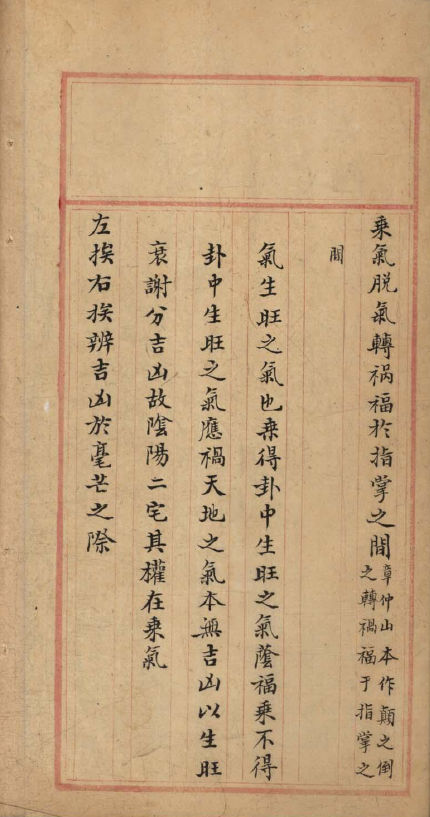 乘氣脱氣轉禍福於指掌之間章仲山本作顛之倒
之轉禍福于指掌之
間
氣生旺之氣也乘得卦中生旺之氣蔭福乘不得
卦中生旺之氣應禍天地之氣本無吉凶以生旺
衰謝分吉凶故陰陽二宅其權在乘氣
左挨右挨辨吉凶於毫芒之際